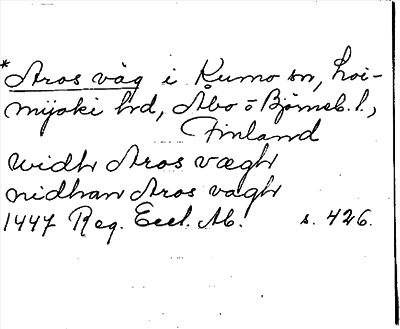 *Aros väg i Kumo sn, Loi-
mijoki hd, Åbo o Björneb. l.,
Finland
widh Aros vægh
nidhan Aros vagh
1447 Reg. Eccl. Ab. s. 426.